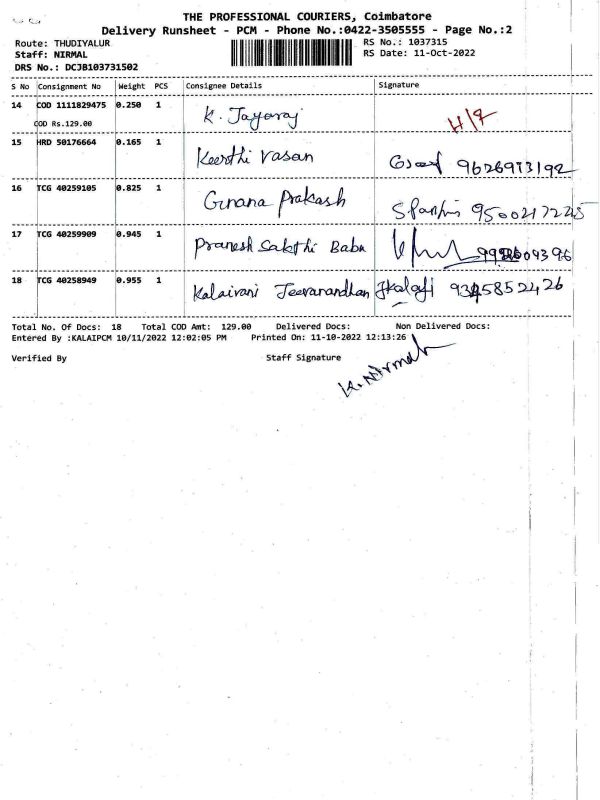 THE PROFESSIONAL COURIERS, Coimbatore
Delivery Runsheet - PCM - Phone No.:0422-3505555 - Page No.:2
Route: THUDIYALUR
RS No.: 1037315
Staff: NIRMAL
RS Date: 11-Oct-2022
DRS No.: DCJB103731502
S No Consignment No Weight PCS Consignee Details Signature
14 COD 1111829475 0.250 1 K. Jayaraj
COD Rs.129.00
15 HRD 50176664 0.165 1 Keerthi vasan 9626973192
16 TCG 40259105 0.825 1 Gnana Prakash 9500217225
17 TCG 40259909 0.945 1 Pranesh Sakthi Babu
18 TCG 40258949 0.955 1 Kalaivani Jeevanandhan
Total No. Of Docs: 18 Total COD Amt: 129.00 Delivered Docs: Non Delivered Docs:
Entered By :KALAIPCM 10/11/2022 12:02:05 PM Printed On: 11-10-2022 12:13:26
Verified By Staff Signature
K. Nirmal